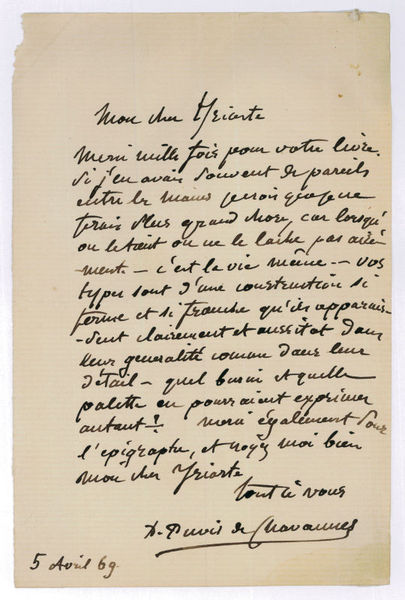 Mon cher Yriarte
Merci mille fois pour votre livre.
Si j'en avais souvent de pareils
entre les mains je crois que je ne
ferais plus grand chose, car lorsqu'
on le tient on ne le lache pas aisé-
ment - c'est la vie même - vos
types sont d'une construction si
ferme et si franche qu'ils apparais-
-sent clairement et aussitot dans
leur generalité comme dans leur
détail - quel burin et quelle
palette en pourraient exprimer
autant? merci également pour
l'epigraphe, et croyez moi bien
mon cher Yriarte
tout à vous
P. Puvis de Chavannes
5 Avril 69.